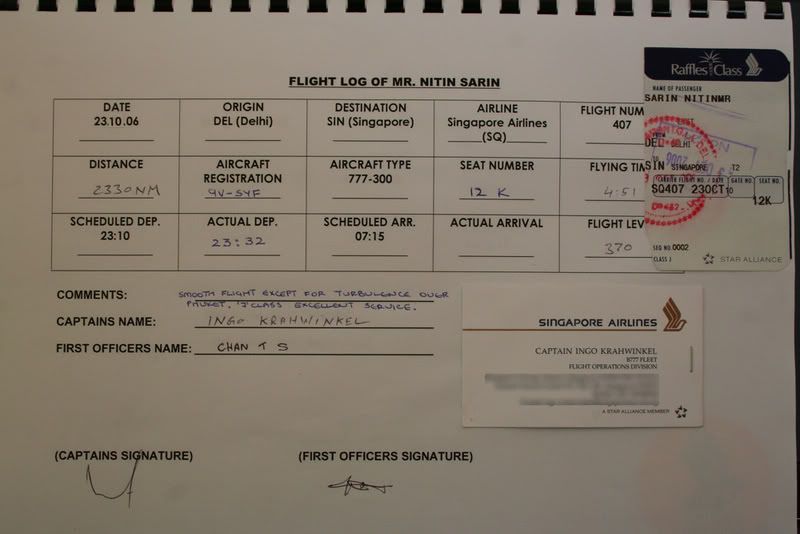 FLIGHT LOG OF MR. NITIN SARIN
DATE ORIGIN DESTINATION AIRLINE FLIGHT NUM
23.10.06 DEL (Delhi) SIN (Singapore) Singapore Airlines 407
(SQ)
DISTANCE AIRCRAFT AIRCRAFT TYPE SEAT NUMBER FLYING TIM
REGISTRATION 777-300
2330NM 9V-SYF 12 K 4:51
SCHEDULED DEP. ACTUAL DEP. SCHEDULED ARR. ACTUAL ARRIVAL FLIGHT LEV
23:10 23:32 07:15 370
COMMENTS: SMOOTH FLIGHT EXCEPT FOR TURBULENCE OVER
PHUKET. 'J' CLASS EXCELLENT SERVICE.
CAPTAINS NAME: INGO KRAHWINKEL
FIRST OFFICERS NAME: CHAN T S
(CAPTAINS SIGNATURE) (FIRST OFFICERS SIGNATURE)
Raffles Class
NAME OF PASSENGER
SARIN NITINMR
DEL DELHI
SIN SINGAPORE T2
CARRIER FLIGHT NO. / DATE GATE NO. SEAT NO.
SQ407 23OCT 10
12K
SEQ NO. 0002
CLASS J
STAR ALLIANCE
SINGAPORE AIRLINES
CAPTAIN INGO KRAHWINKEL
B777 FLEET
FLIGHT OPERATIONS DIVISION
A STAR ALLIANCE MEMBER